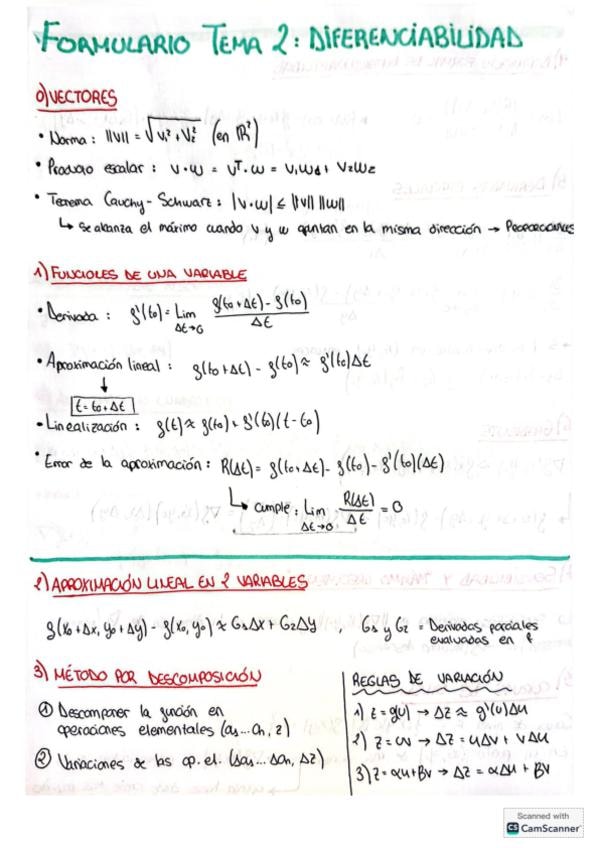 FORMULARIO TEMA 2: DIFERENCIABILIDAD
0) VECTORES
• Norma: ||v|| = √(v₁² + v₂²) (en ℝ²)
• Producto escalar: v · w = vᵀ · w = v₁w₁ + v₂w₂
• Teorema Cauchy-Schwarz: |v·w| ≤ ||v|| ||w||
↳ Se alcanza el máximo cuando v y w apuntan en la misma dirección → PROPORCIONALES
1) FUNCIONES DE UNA VARIABLE
• Derivada: g'(t₀) = Lim Δt→0 (g(t₀+Δt) - g(t₀)) / Δt
• Aproximación lineal: g(t₀+Δt) - g(t₀) ≈ g'(t₀)Δt
↓
t = t₀ + Δt
• Linealización: g(t) ≈ g(t₀) + g'(t₀)(t - t₀)
• Error de la aproximación: R(Δt) = g(t₀+Δt) - g(t₀) - g'(t₀)(Δt)
↳ cumple: Lim Δt→0 R(Δt)/Δt = 0
2) APROXIMACIÓN LINEAL EN 2 VARIABLES
g(x₀ + Δx, y₀ + Δy) - g(x₀, y₀) ≈ G₁Δx + G₂Δy , G₁ y G₂ - Derivadas parciales
evaluadas en
3) MÉTODO POR DESCOMPOSICIÓN
① Descomponer la función en
operaciones elementales (a₁...an, z)
② Variaciones de las op. el. (Δa₁...Δan, Δz)
REGLAS DE VARIACIÓN
1) z = g(u) → Δz ≈ g'(u)Δu
2) z = uv → Δz = uΔv + vΔu
3) z = αu+βv → Δz = αΔu + βv
Scanned with
CS CamScanner